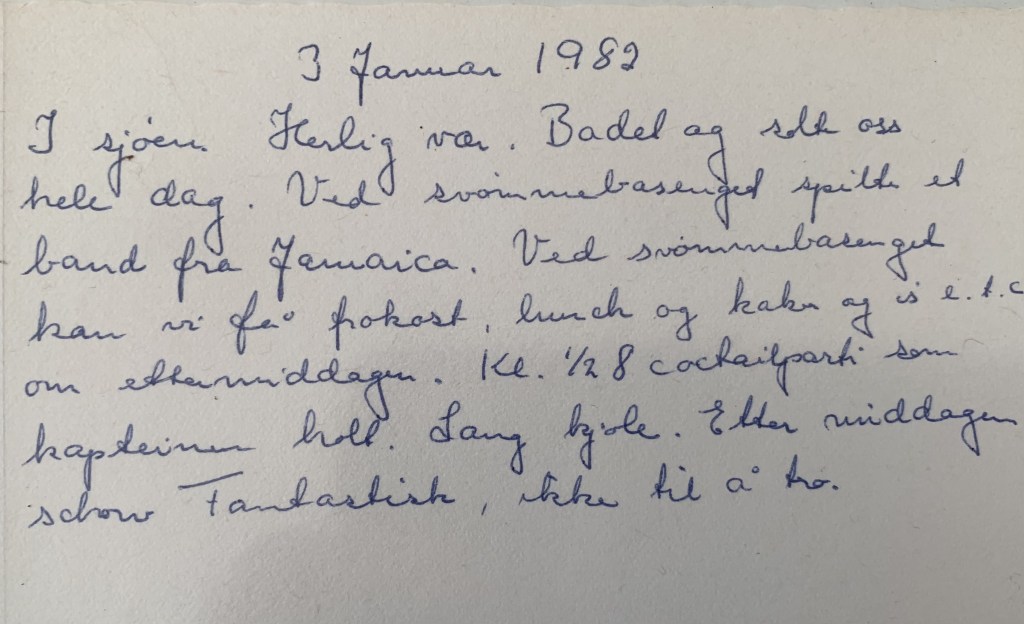 3 Januar 1982
I sjøen. Herlig vær. Badet og solte oss
hele dag. Ved svømmebasenget spilte et
band fra Jamaica. Ved svømmebasenget
kan vi få frokost, lunch og kake og is e.t.c
om ettermiddagen. Kl. 1/2 8 coctailparti som
kapteinen holt. Lang kjole. Etter middagen
schow Fantastisk, ikke til å tro.